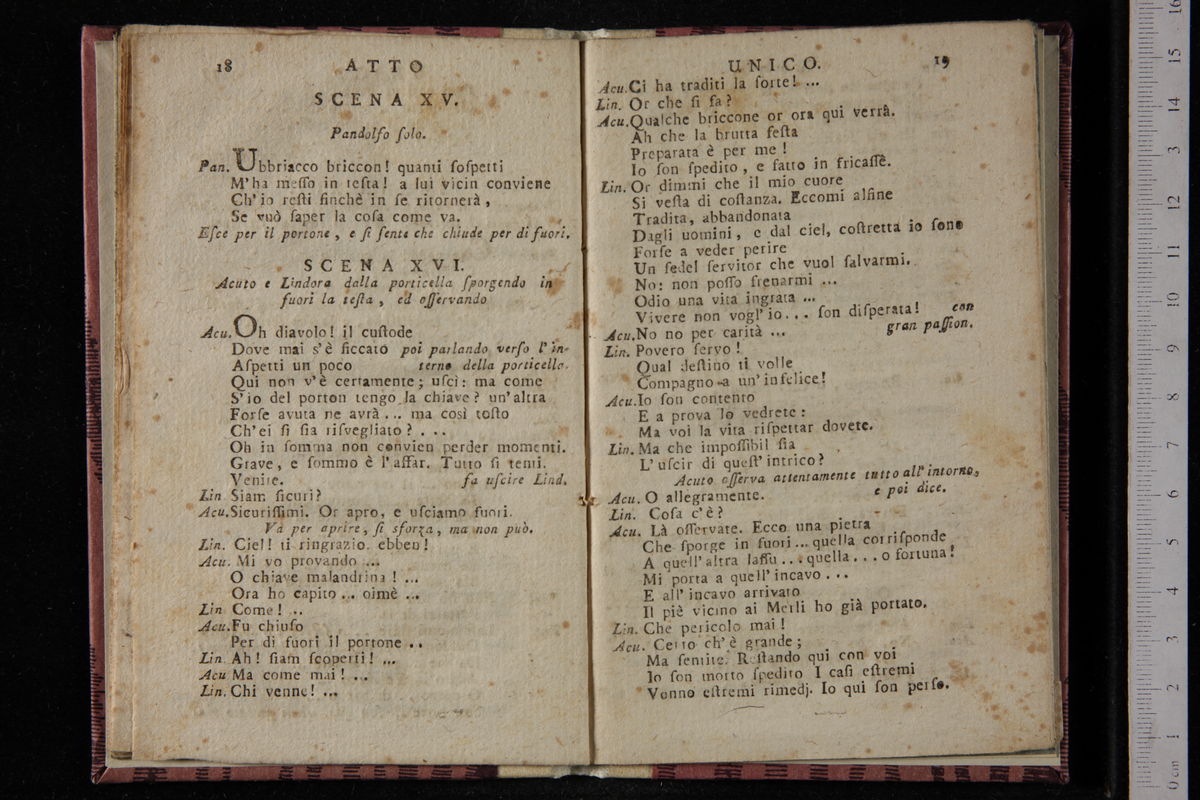 18 ATTO
SCENA XV.
Pandolfo ſolo.
Pan. Ubbriacco briccon! quanti ſoſpetti
M'ha meſſo in teſta! a lui vicin conviene
Ch'io reſti finchè in ſe ritornerà,
Se vuò ſaper la coſa come va.
Eſce per il portone, e ſi ſente che chiude per di fuori.
SCENA XVI.
Acuto e Lindora dalla porticella ſporgendo in
fuori la teſta, ed oſſervando
Acu. Oh diavolo! il cuſtode
Dove mai s'è ficcato poi parlando verſo l'in-
Aſpetti un poco terno della porticella.
Qui non v'è certamente; uſcì: ma come
S'io del porton tengo la chiave? un'altra
Forſe avuta ne avrà... ma così toſto
Ch'ei ſi ſia riſvegliato? ...
Oh in ſomma non convien perder momenti.
Grave, e ſommo è l'affar. Tutto ſi tenti.
Venite. fa uſcire Lind.
Lin Siam ſicuri?
Acu. Sicuriſſimi. Or apro, e uſciamo fuori.
Va per aprire, ſi sforza, ma non può.
Lin. Ciel! ti ringrazio. ebben!
Acu. Mi vo provando ...
O chiave malandrina! ...
Ora ho capito ... oimè ...
Lin Come! ..
Acu. Fu chiuſo
Per di fuori il portone ..
Lin. Ah! ſiam ſcoperti! ...
Acu Ma come mai! ...
Lin. Chi venne! ...
UNICO. 19
Acu. Ci ha traditi la ſorte! ...
Lin. Or che ſi fa?
Acu. Qualche briccone or ora qui verrà.
Ah che la brutta feſta
Preparata è per me!
Io ſon ſpedito, e fatto in fricaſſè.
Lin. Or dimmi che il mio cuore
Si veſta di coſtanza. Eccomi alfine
Tradita, abbandonata
Dagli uomini, e dal ciel, coſtretta io ſono
Forſe a veder perire
Un fedel ſervitor che vuol ſalvarmi.
No: non poſſo frenarmi ...
Odio una vita ingrata ...
Vivere non vogl'io... ſon diſperata! con
Acu. No no per carità ... gran paſſion.
Lin. Povero ſervo!
Qual deſtino ti volle
Compagno a un'infelice!
Acu. Io ſon contento
E a prova lo vedrete:
Ma voi la vita riſpettar dovete.
Lin. Ma che impoſſibil ſia
L'uſcir di queſt'intrico?
Acuto oſſerva attentamente tutto all'intorno,
Acu. O allegramente. e poi dice.
Lin. Coſa c'è?
Acu. Là oſſervate. Ecco una pietra
Che ſporge in fuori... quella corriſponde
A quell'altra laſſu... quella... o fortuna!
Mi porta a quell'incavo...
E all'incavo arrivato
Il piè vicino ai Merli ho già portato.
Lin. Che pericolo mai!
Acu. Certo ch'è grande;
Ma ſentite. Reſtando qui con voi
Io ſon morto ſpedito I caſi eſtremi
Vonno eſtremi rimedj. Io qui ſon perſo.